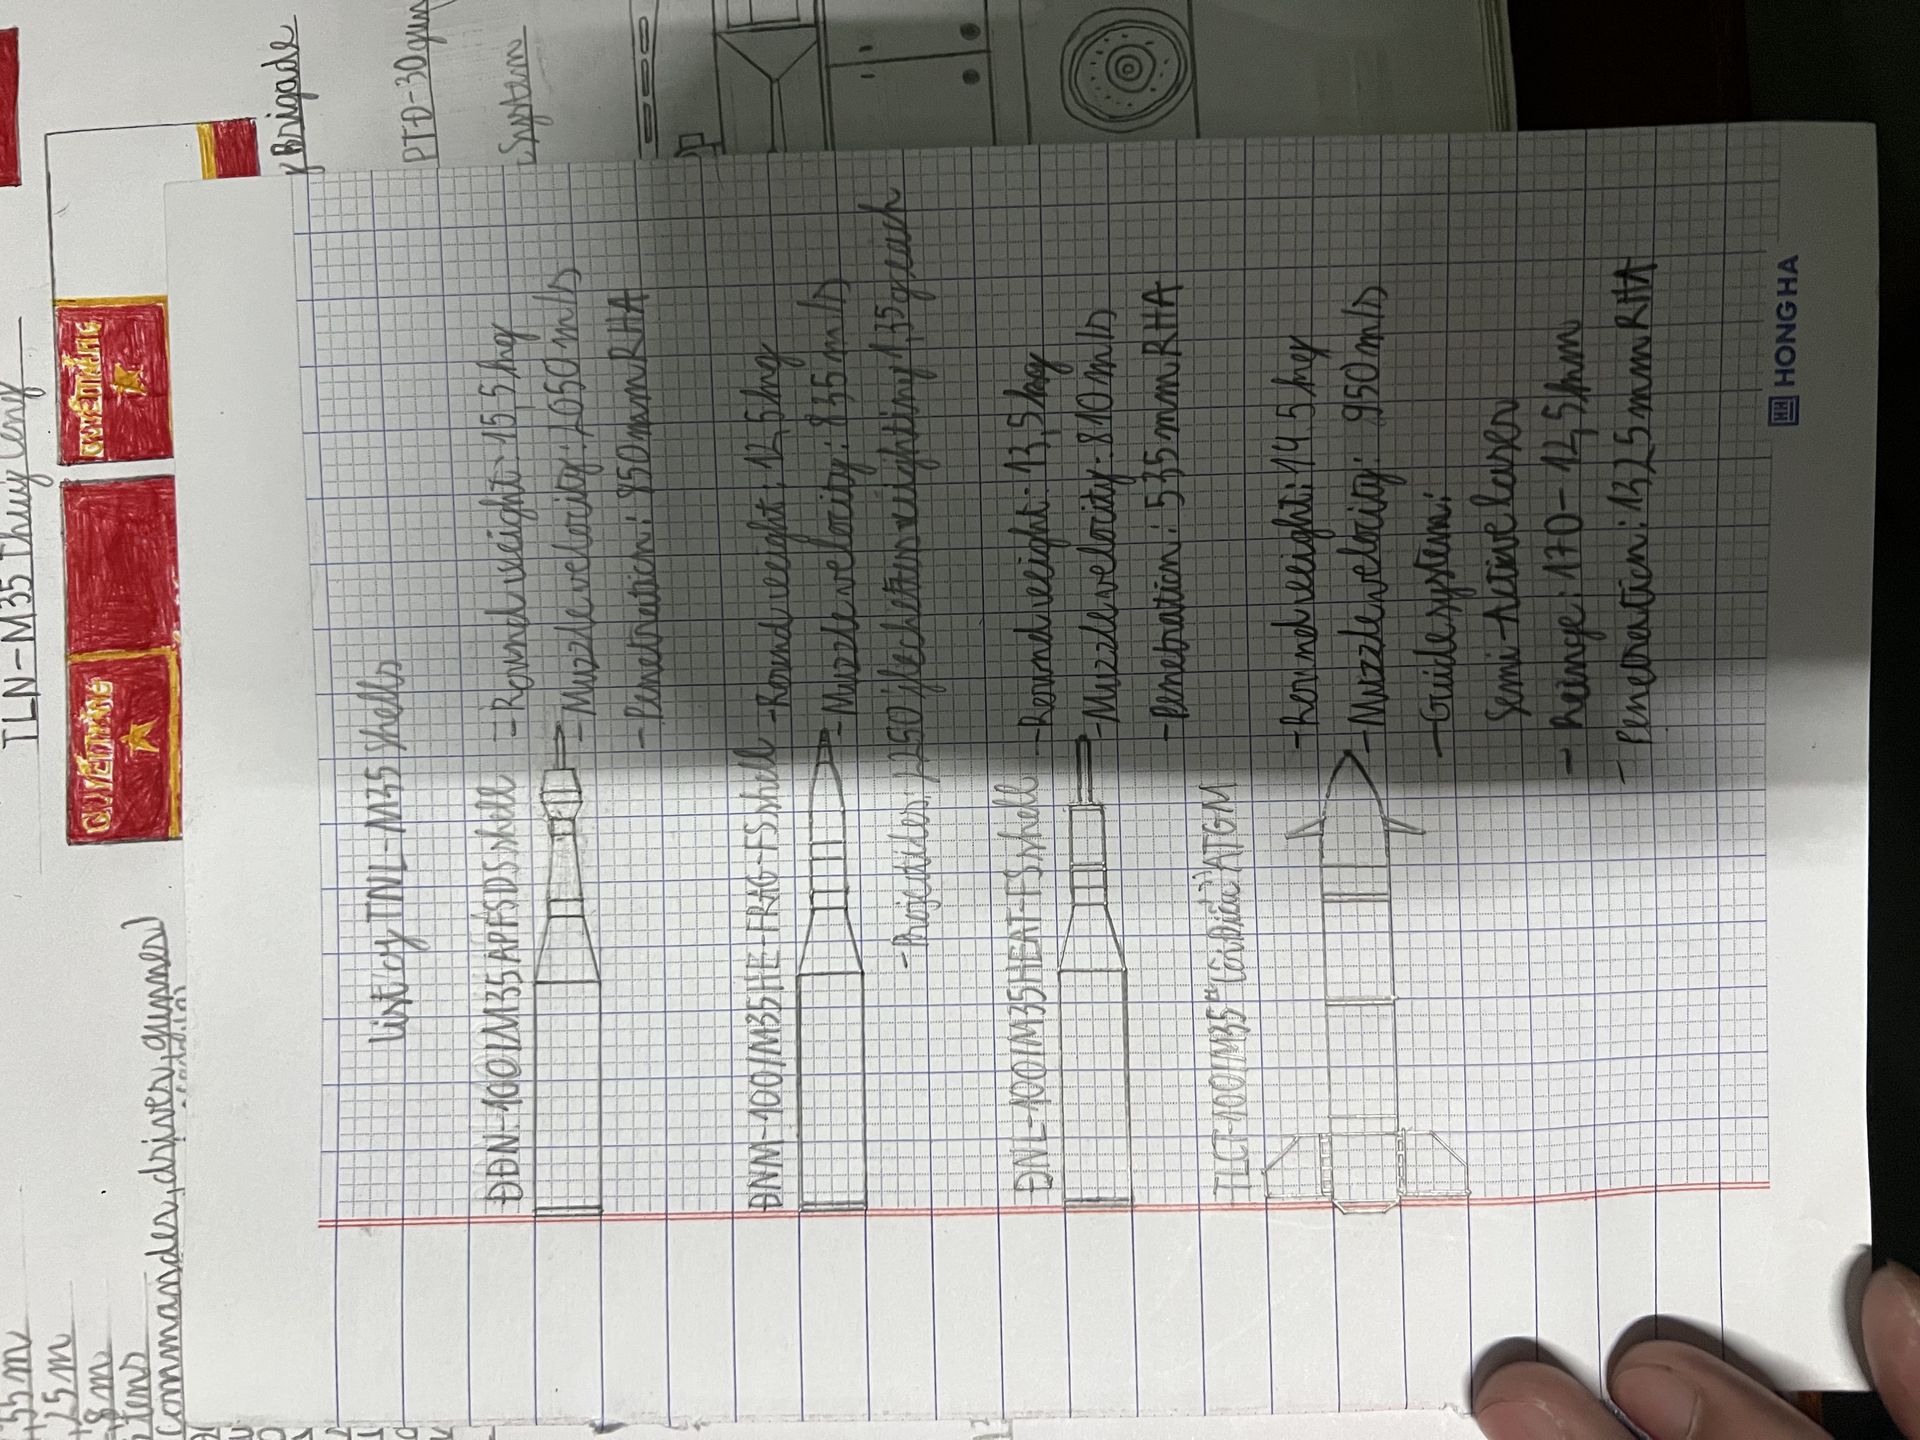 List of TNL-M35 shells
ĐĐN-100/M35 APFSDS shell
- Round weight: 15,5 kg
- Muzzle velocity: 2050 m/s
- Penetration: 850 mm RHA
ĐNM-100/M35 HE-FRAG-FS shell
- Round weight: 12,5 kg
- Muzzle velocity: 835 m/s
- Projectiles: 1250 flechetten weighting 1,35g each
ĐNL-100/M35 HEAT-FS shell
- Round weight: 13,5 kg
- Muzzle velocity: 810 m/s
- Penetration: 535 mm RHA
TLCT-100/M35 ATGM
- Round weight: 14,5 kg
- Muzzle velocity: 950 m/s
- Guide system:
Semi-Active laser
- Range: 170-12,5 km
- Penetration: 1325 mm RHA
HH HONG HA
TLN-M35
Brigade
PTĐ-30
System
QUYẾT THẮNG
QUYẾT THẮNG
55m
25m
8m
tens
Commander, driver, gunner